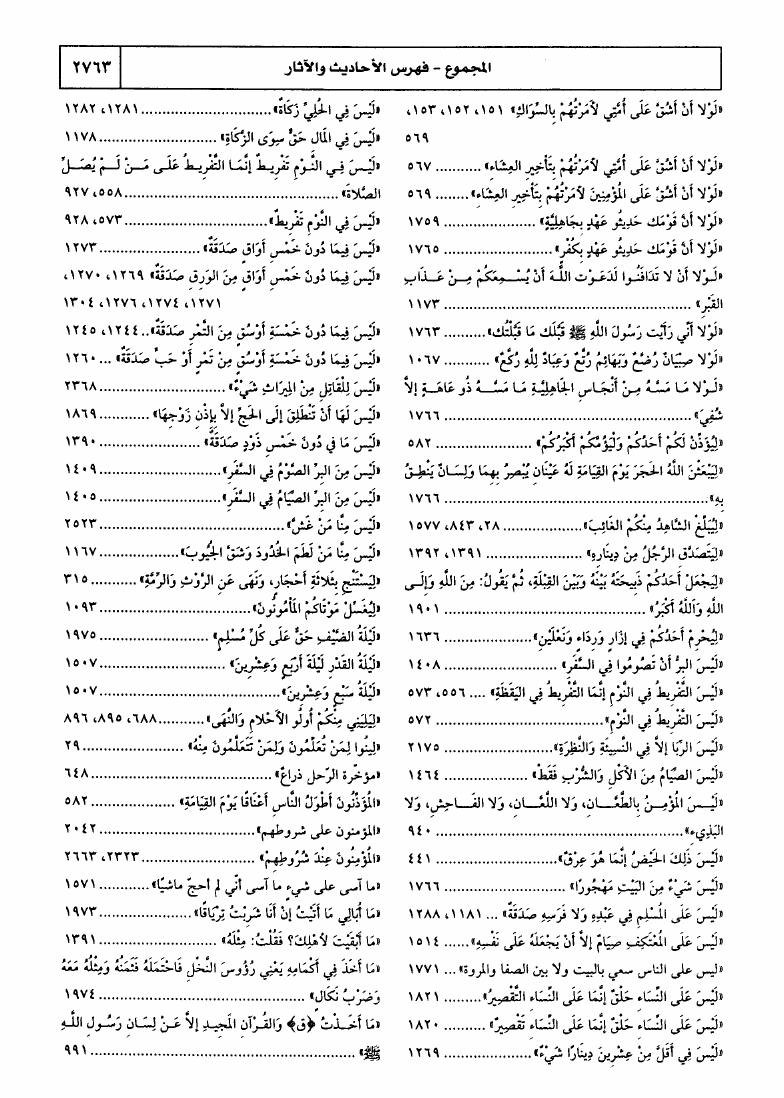 المجموع – فهرس الأحاديث والآثار
٢٧٦٣
«لَوْلا أَنْ أَشُقَّ عَلَى أُمَّتِي لأَمَرْتُهُمْ بِالسِّوَاكِ» ١٥١، ١٥٢، ١٥٣،
٥٦٩
«لَوْلا أَنْ أَشُقَّ عَلَى أُمَّتِي لأَمَرْتُهُمْ بِتَأْخِيرِ العِشَاءِ» ........... ٥٦٧
«لَوْلا أَنْ أَشُقَّ عَلَى المُؤْمِنِينَ لأَمَرْتُهُمْ بِتَأْخِيرِ العِشَاءِ» ........ ٥٦٩
«لَوْلا أَنَّ قَوْمَك حَدِيثُو عَهْدٍ بِجَاهِلِيَّةٍ» ...................... ١٧٥٩
«لَوْلا أَنَّ قَوْمَك حَدِيثُو عَهْدٍ بِكُفْرٍ» .......................... ١٧٦٥
«لَوْلا أَنْ لا تَدَافَنُوا لَدَعَوْت اللَّهَ أَنْ يُسْمِعَكُمْ مِنْ عَذَابِ
القَبْرِ» ........................................................ ١١٧٣
«لَوْلا أَنِّي رَأَيْت رَسُولَ اللَّهِ ﷺ قَبَّلَك مَا قَبَّلْتُك» .......... ١٧٦٣
«لَوْلا صِبْيَانٌ رُضَّعٌ وَبَهَائِمُ رُتَّعٌ وَعِبَادٌ لِلَّهِ رُكَّعٌ» ........... ١٠٦٧
«لَوْلا مَا مَسَّهُ مِنْ أَنْجَاسِ الجَاهِلِيَّةِ مَا مَسَّهُ ذُو عَاهَةٍ إلاَّ
شُفِيَ» ........................................................ ١٧٦٦
«لِيُؤَذِّنْ لَكُمْ أَحَدُكُمْ وَلْيَؤُمَّكُمْ أَكْبَرُكُمْ» ...................... ٥٨٢
«لَيَبْعَثَنَّ اللَّهُ الحَجَرَ يَوْمَ القِيَامَةِ لَهُ عَيْنَانِ يُبْصِرُ بِهِمَا وَلِسَانٌ يَنْطِقُ
بِهِ» ........................................................ ١٧٦٦
«لِيُبَلِّغْ الشَّاهِدُ مِنْكُمْ الغَائِبَ» .................. ٢٨، ٨٤٣، ١٥٧٧
«لِيَتَصَدَّق الرَّجُلُ مِنْ دِينَارِهِ» ...................... ١٣٩١، ١٣٩٢
«لِيَجْعَلْ أَحَدُكُمْ ذَبِيحَتَهُ بَيْنَهُ وَبَيْنَ القِبْلَةِ، ثُمَّ يَقُولُ: مِنَ اللَّهِ وَإِلَى
اللَّهِ وَاَللَّهُ أَكْبَرُ» ........................................ ١٩٠١
«لِيُحْرِمْ أَحَدُكُمْ فِي إزَارٍ وَرِدَاءٍ وَنَعْلَيْنِ» .................... ١٦٣٦
«لَيْسَ البِرُّ أَنْ تَصُومُوا فِي السَّفَرِ» ............................ ١٤٠٨
«لَيْسَ التَّفْرِيطُ فِي النَّوْمِ إنَّمَا التَّفْرِيطُ فِي اليَقَظَةِ» .... ٥٥٦، ٥٧٣
«لَيْسَ التَّفْرِيطُ فِي النَّوْمِ» ........................................ ٥٧٢
«لَيْسَ الرِّبَا إلاَّ فِي النَّسِيئَةِ وَالنَّظِرَةِ» ........................ ٢١٧٥
«لَيْسَ الصِّيَامُ مِنَ الأَكْلِ وَالشُّرْبِ فَقَطْ» .................... ١٤٦٤
«لَيْسَ المُؤْمِنُ بِالطَّعَّانِ، وَلا اللَّعَّانِ، وَلا الفَاحِشِ، وَلا
البَذِيءِ» ........................................................ ٩٤٠
«لَيْسَ ذَلِكَ الحَيْضُ إنَّمَا هُوَ عِرْقٌ» ............................ ٤٤١
«لَيْسَ شَيْءٌ مِنَ البَيْتِ مَهْجُورًا» ............................ ١٧٦٦
«لَيْسَ عَلَى المُسْلِمِ فِي عَبْدِهِ وَلا فَرَسِهِ صَدَقَةٌ» ... ١١٨١، ١٢٨٨
«لَيْسَ عَلَى المُعْتَكِفِ صِيَامٌ إلاَّ أَنْ يَجْعَلَهُ عَلَى نَفْسِهِ» ...... ١٥١٤
«ليس على الناس سعي بالبيت ولا بين الصفا والمروة» ... ١٧٧١
«لَيْسَ عَلَى النِّسَاءِ حَلْقٌ إنَّمَا عَلَى النِّسَاءِ التَّقْصِيرُ» ........ ١٨٢١
«لَيْسَ عَلَى النِّسَاءِ حَلْقٌ إنَّمَا عَلَى النِّسَاءِ تَقْصِيرٌ» .......... ١٨٢٠
«لَيْسَ فِي أَقَلَّ مِنْ عِشْرِينَ دِينَارًا شَيْءٌ» .................... ١٢٦٩
«لَيْسَ فِي الحُلِيِّ زَكَاةٌ» .............................. ١٢٨١، ١٢٨٢
«لَيْسَ فِي المَالِ حَقٌّ سِوَى الزَّكَاةِ» ............................ ١١٧٨
«لَيْسَ فِي النَّوْمِ تَفْرِيطٌ إنَّمَا التَّفْرِيطُ عَلَى مَنْ لَمْ يُصَلِّ
الصَّلاةَ» ................................................ ٥٥٨، ٩٢٧
«لَيْسَ فِي النَّوْمِ تَفْرِيطٌ» .............................. ٥٧٣، ٩٢٨
«لَيْسَ فِيمَا دُونَ خَمْسِ أَوَاقٍ صَدَقَةٌ» ........................ ١٢٧٣
«لَيْسَ فِيمَا دُونَ خَمْسِ أَوَاقٍ مِنَ الوَرِقِ صَدَقَةٌ» ١٢٦٩، ١٢٧٠،
١٢٧١، ١٢٧٤، ١٢٧٦، ١٣٠٤
«لَيْسَ فِيمَا دُونَ خَمْسَةِ أَوْسُقٍ مِنَ التَّمْرِ صَدَقَةٌ» .. ١٢٤٤، ١٢٤٥
«لَيْسَ فِيمَا دُونَ خَمْسَةِ أَوْسُقٍ مِنْ تَمْرٍ أَوْ حَبٍّ صَدَقَةٌ» ... ١٢٦٠
«لَيْسَ لِلْقَاتِلِ مِنْ المِيرَاثِ شَيْءٌ» ............................ ٢٣٦٨
«لَيْسَ لَهَا أَنْ تَنْطَلِقَ إلَى الحَجِّ إلاَّ بِإِذْنِ زَوْجِهَا» ............ ١٨٦٩
«لَيْسَ مَا فِي دُونَ خَمْسِ ذَوْدٍ صَدَقَةٌ» ........................ ١٣٩٠
«لَيْسَ مِنَ البِرِّ الصَّوْمُ فِي السَّفَرِ» ............................ ١٤٠٩
«لَيْسَ مِنَ البِرِّ الصِّيَامُ فِي السَّفَرِ» ............................ ١٤٠٥
«لَيْسَ مِنَّا مَنْ غَشَّ» ............................................ ٢٥٢٣
«لَيْسَ مِنَّا مَنْ لَطَمَ الخُدُودَ وَشَقَّ الجُيُوبَ» .................... ١١٦٧
«لِيَسْتَنْجِ بِثَلاثَةِ أَحْجَارٍ، وَنَهَى عَنِ الرَّوْثِ وَالرِّمَّةِ» .......... ٣١٥
«لِيُغَسِّلْ مَوْتَاكُمْ المَأْمُونُونَ» .................................. ١٠٩٣
«لَيْلَةُ الضَّيْفِ حَقٌّ عَلَى كُلِّ مُسْلِمٍ» ........................ ١٩٧٥
«لَيْلَةُ القَدْرِ لَيْلَةَ أَرْبَعٍ وَعِشْرِينَ» ............................ ١٥٠٧
«لَيْلَةُ سَبْعٍ وَعِشْرِينَ» .......................................... ١٥٠٧
«لِيَلِيَنِي مِنْكُمْ أُولُو الأَحْلامِ وَالنُّهَى» .......... ٦٨٨، ٨٩٥، ٨٩٦
«لِينُوا لِمَنْ تُعَلِّمُونَ وَلِمَنْ تَتَعَلَّمُونَ مِنْهُ» ...................... ٢٩
«مؤخّرة الرّحل ذراعٌ» ............................................ ٦٤٨
«المُؤَذِّنُونَ أَطْوَلُ النَّاسِ أَعْنَاقًا يَوْمَ القِيَامَةِ» .................. ٥٨٢
«المؤمنون على شروطهم» ........................................ ٢٠٤٢
«المُؤْمِنُونَ عِنْدَ شُرُوطِهِمْ» .......................... ٢٣٢٣، ٢٦٦٣
«ما آسى على شيءٍ ما آسى أنّي لم أحجّ ماشيًا» ............ ١٥٧١
«مَا أُبَالِي مَا أَتَيْتُ إنْ أَنَا شَرِبْتُ تِرْيَاقًا» .................. ١٩٧٣
«مَا أَبْقَيْتَ لأَهْلِكَ؟ فَقُلْتُ: مِثْلَهُ» ............................ ١٣٩١
«مَا أَخَذَ فِي أَكْمَامِهِ يَعْنِي رُؤُوسَ النَّخْلِ فَاحْتَمَلَهُ فَثَمَنُهُ وَمِثْلُهُ مَعَهُ
وَضَرْبُ نَكَالٍ» .................................................. ١٩٧٤
«مَا أَخَذْتُ ﴿ق﴾ وَالقُرْآنِ المَجِيدِ إلاَّ عَنْ لِسَانِ رَسُولِ اللَّهِ
ﷺ» ............................................................ ٩٩١